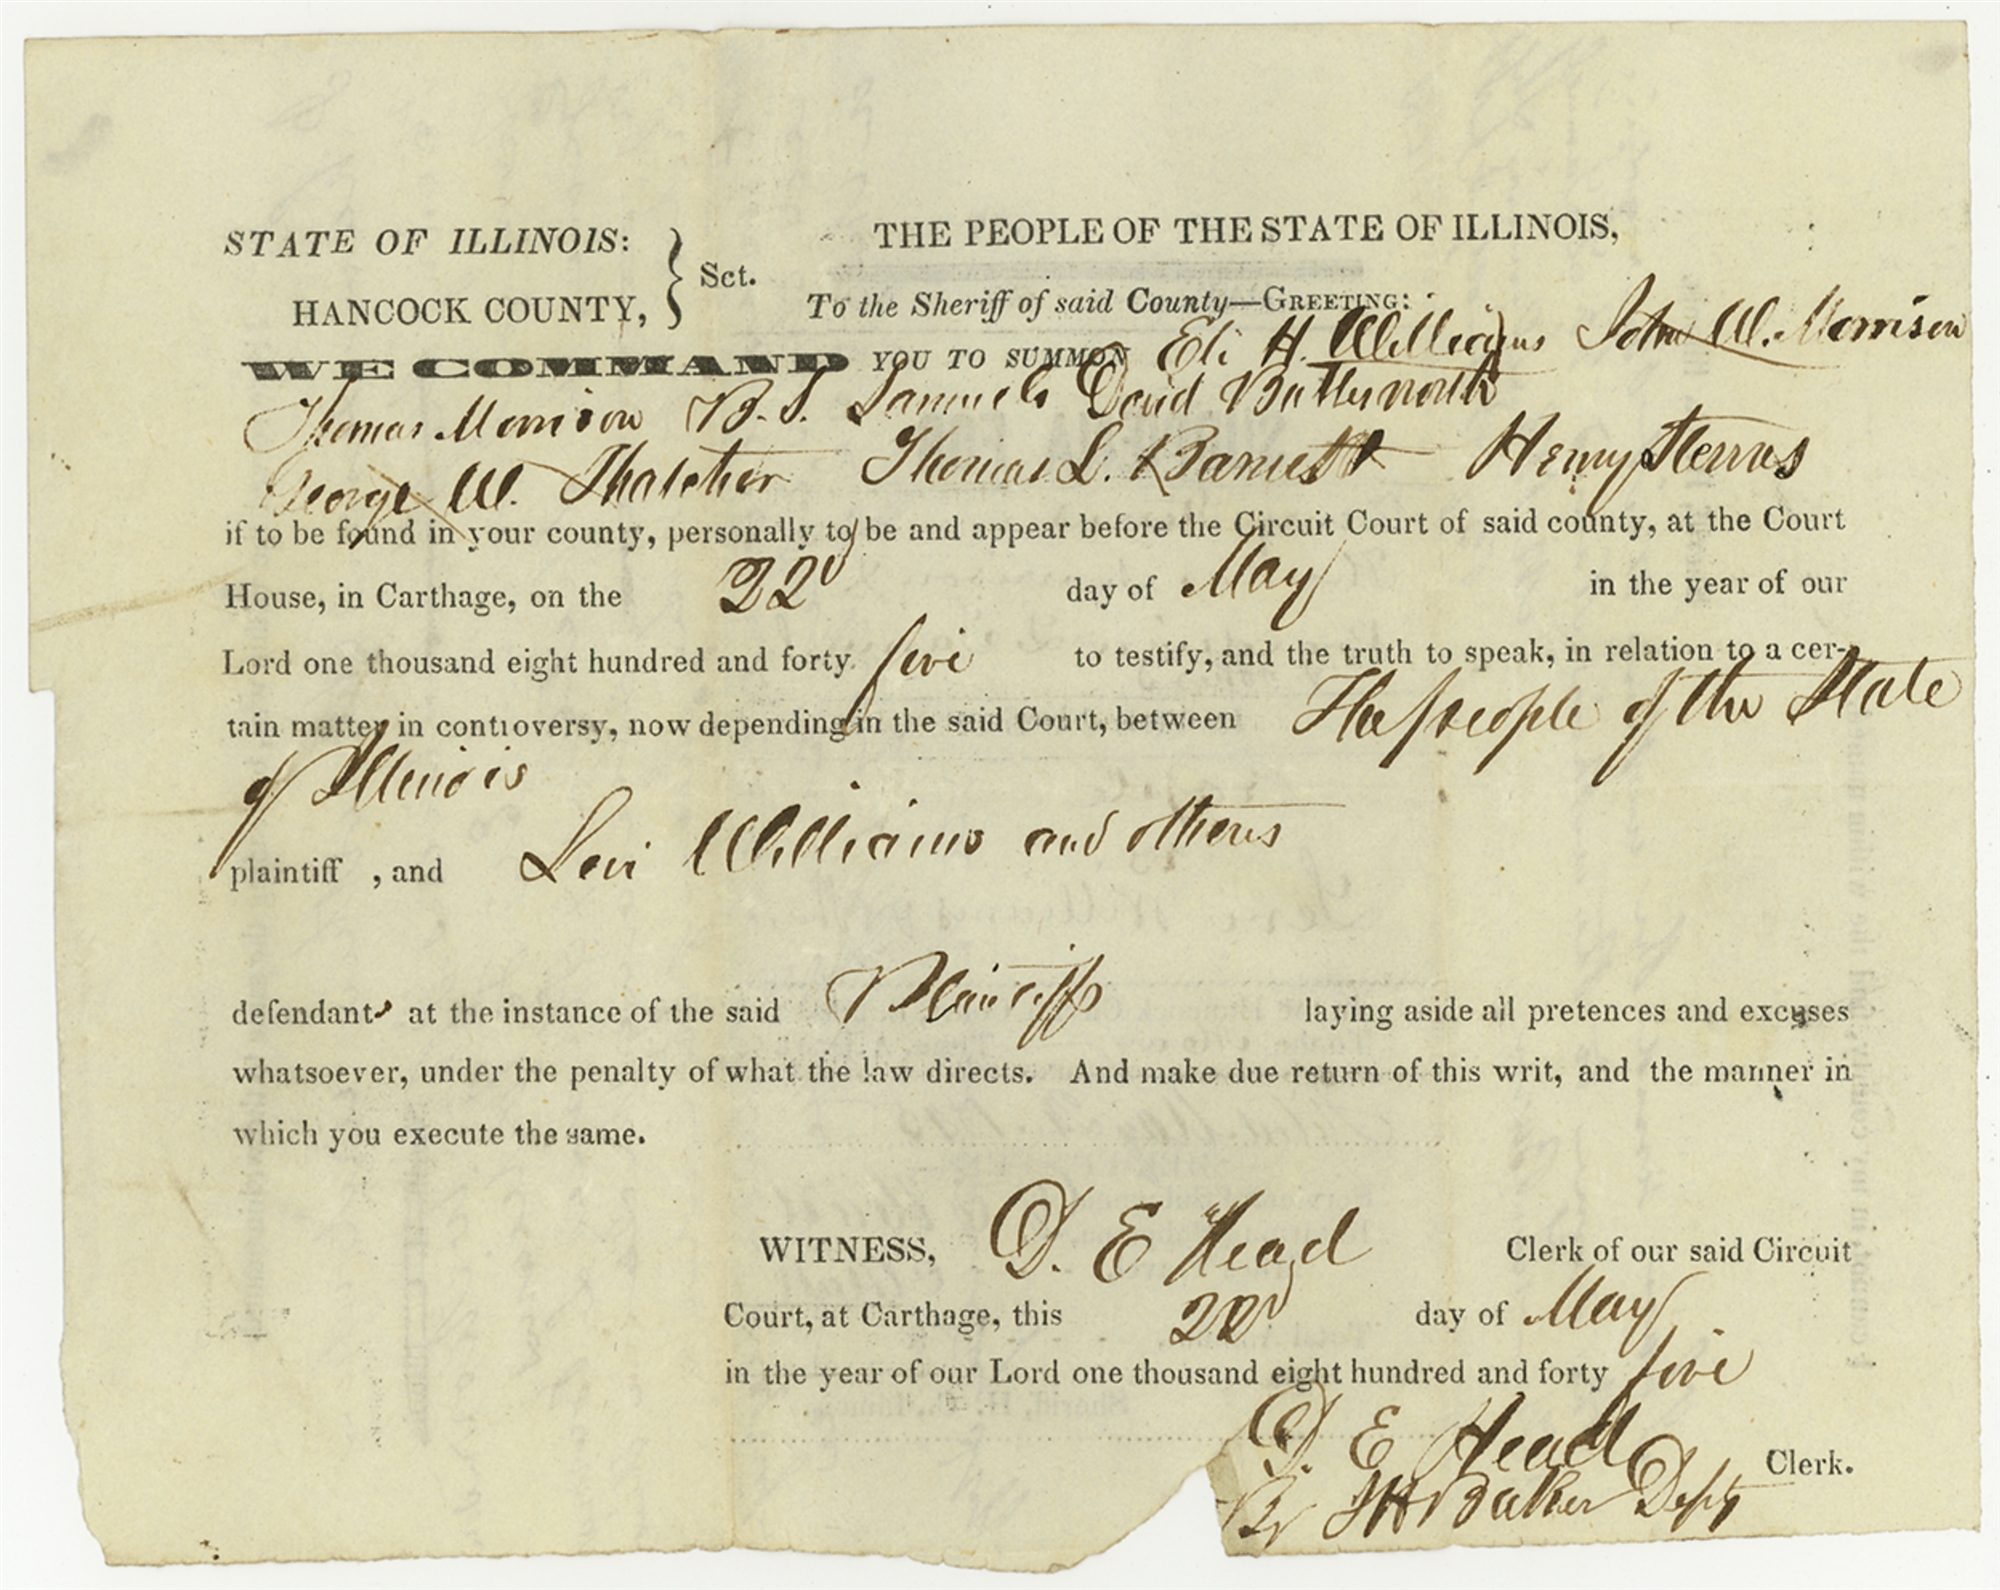 STATE OF ILLINOIS:
HANCOCK COUNTY, } Sct.
THE PEOPLE OF THE STATE OF ILLINOIS,
To the Sheriff of said County—GREETING:
WE COMMAND YOU TO SUMMON Eli H. Williams John W. Morrison
Thomas Morrison B. S. Samuels David Butterworth
George W. Thatcher Thomas L. Barnett Henry Sterns
if to be found in your county, personally to be and appear before the Circuit Court of said county, at the Court
House, in Carthage, on the 22 day of May in the year of our
Lord one thousand eight hundred and forty five to testify, and the truth to speak, in relation to a cer-
tain matter in controversy, now depending in the said Court, between The people of the State
of Illinois
plaintiff , and Levi Williams and others
defendants at the instance of the said Plaintiff laying aside all pretences and excuses
whatsoever, under the penalty of what the law directs. And make due return of this writ, and the manner in
which you execute the same.
WITNESS, D. E Head Clerk of our said Circuit
Court, at Carthage, this 22 day of May
in the year of our Lord one thousand eight hundred and forty five
D. E Head Clerk.
By Baker Depty